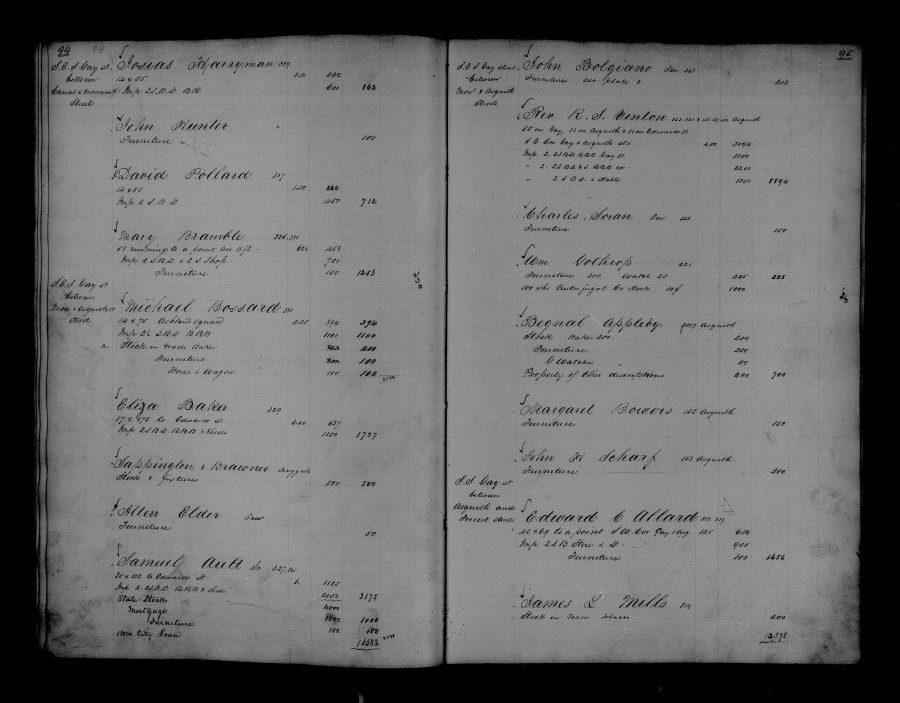 94
S. E. S Gay st.
between
Canal & Monumt
Street
Josias Harryman 329
14 x 55 1.50 262
Imp 2 S. B. D. BB 600 862
John Hunter
Furniture 100
David Pollard 327
14 x 55 1.50 262
Imp 2 S. B. D 450 712
Mary Bramble
55 running to a point 453
Imp 2 S B. D. & 2 S Shop 700
Furniture 100 1253
S. E. S Gay st
between
Mon & Asquith
Streets
Michael Bossard 331
14 x 75 Ashland Square 2.25 394 394
Imp 2½ S. B. D BBB 1100 1100
Stock in trade Baker 400
Furniture 100
Horse & Wagon 100 100
Eliza Baker 329
17 x 175 to Edward st. 637
Imp 2 S. B. D. BBB & Sheds 1100 1737
Sappington & Brawner Druggists
Stock & fixtures 500 500
Allen Elder
Furniture 50
Samuel Ault Sr
to Edward St 1125
Imp 2. 2 S. B. D. BBB & Sheds 2050 3175
State Stock 4000
Mortgage
Furniture 1000 1000
City Loan 100 100
95
S E S Gay street
between
Mont & Asquith
Streets
John Bolgiano
Furniture 200 plate 203
Rev. R. S. Vinton Asquith
55 on Gay, 11 on Asquith & 11 on Edward st
S. E. Cor Gay & Asquith sts 4.00 3094
Imp 2. 2 S B. D. BBB Gay st
" 2. 2 S B. D. & S. BBB cor. 2200
" 2 S B. D. & Stable 8894
Charles Swan
Furniture 150
Wm Gothrop 321
Furniture 200 Watch 20 225 225
100 Shs Centrifugal Co Stock 10$ 1000
Begnal Appleby Asquith
Stock Baker 200 200
Furniture 200
G Watches
Property of Other descriptions 200 700
Margaret Bowers 155 Asquith
Furniture 150
John H Scharf 153 Asquith
Furniture 200
S. S. Gay st
between
Asquith and
Forrest streets
Edward C Allard
42 x 69 to a point S W Cor Gay & Asq 125 656
Imp 2 S B Store & D 900
Furniture 100 1656
James L Mills 319
Stock in Trade 200